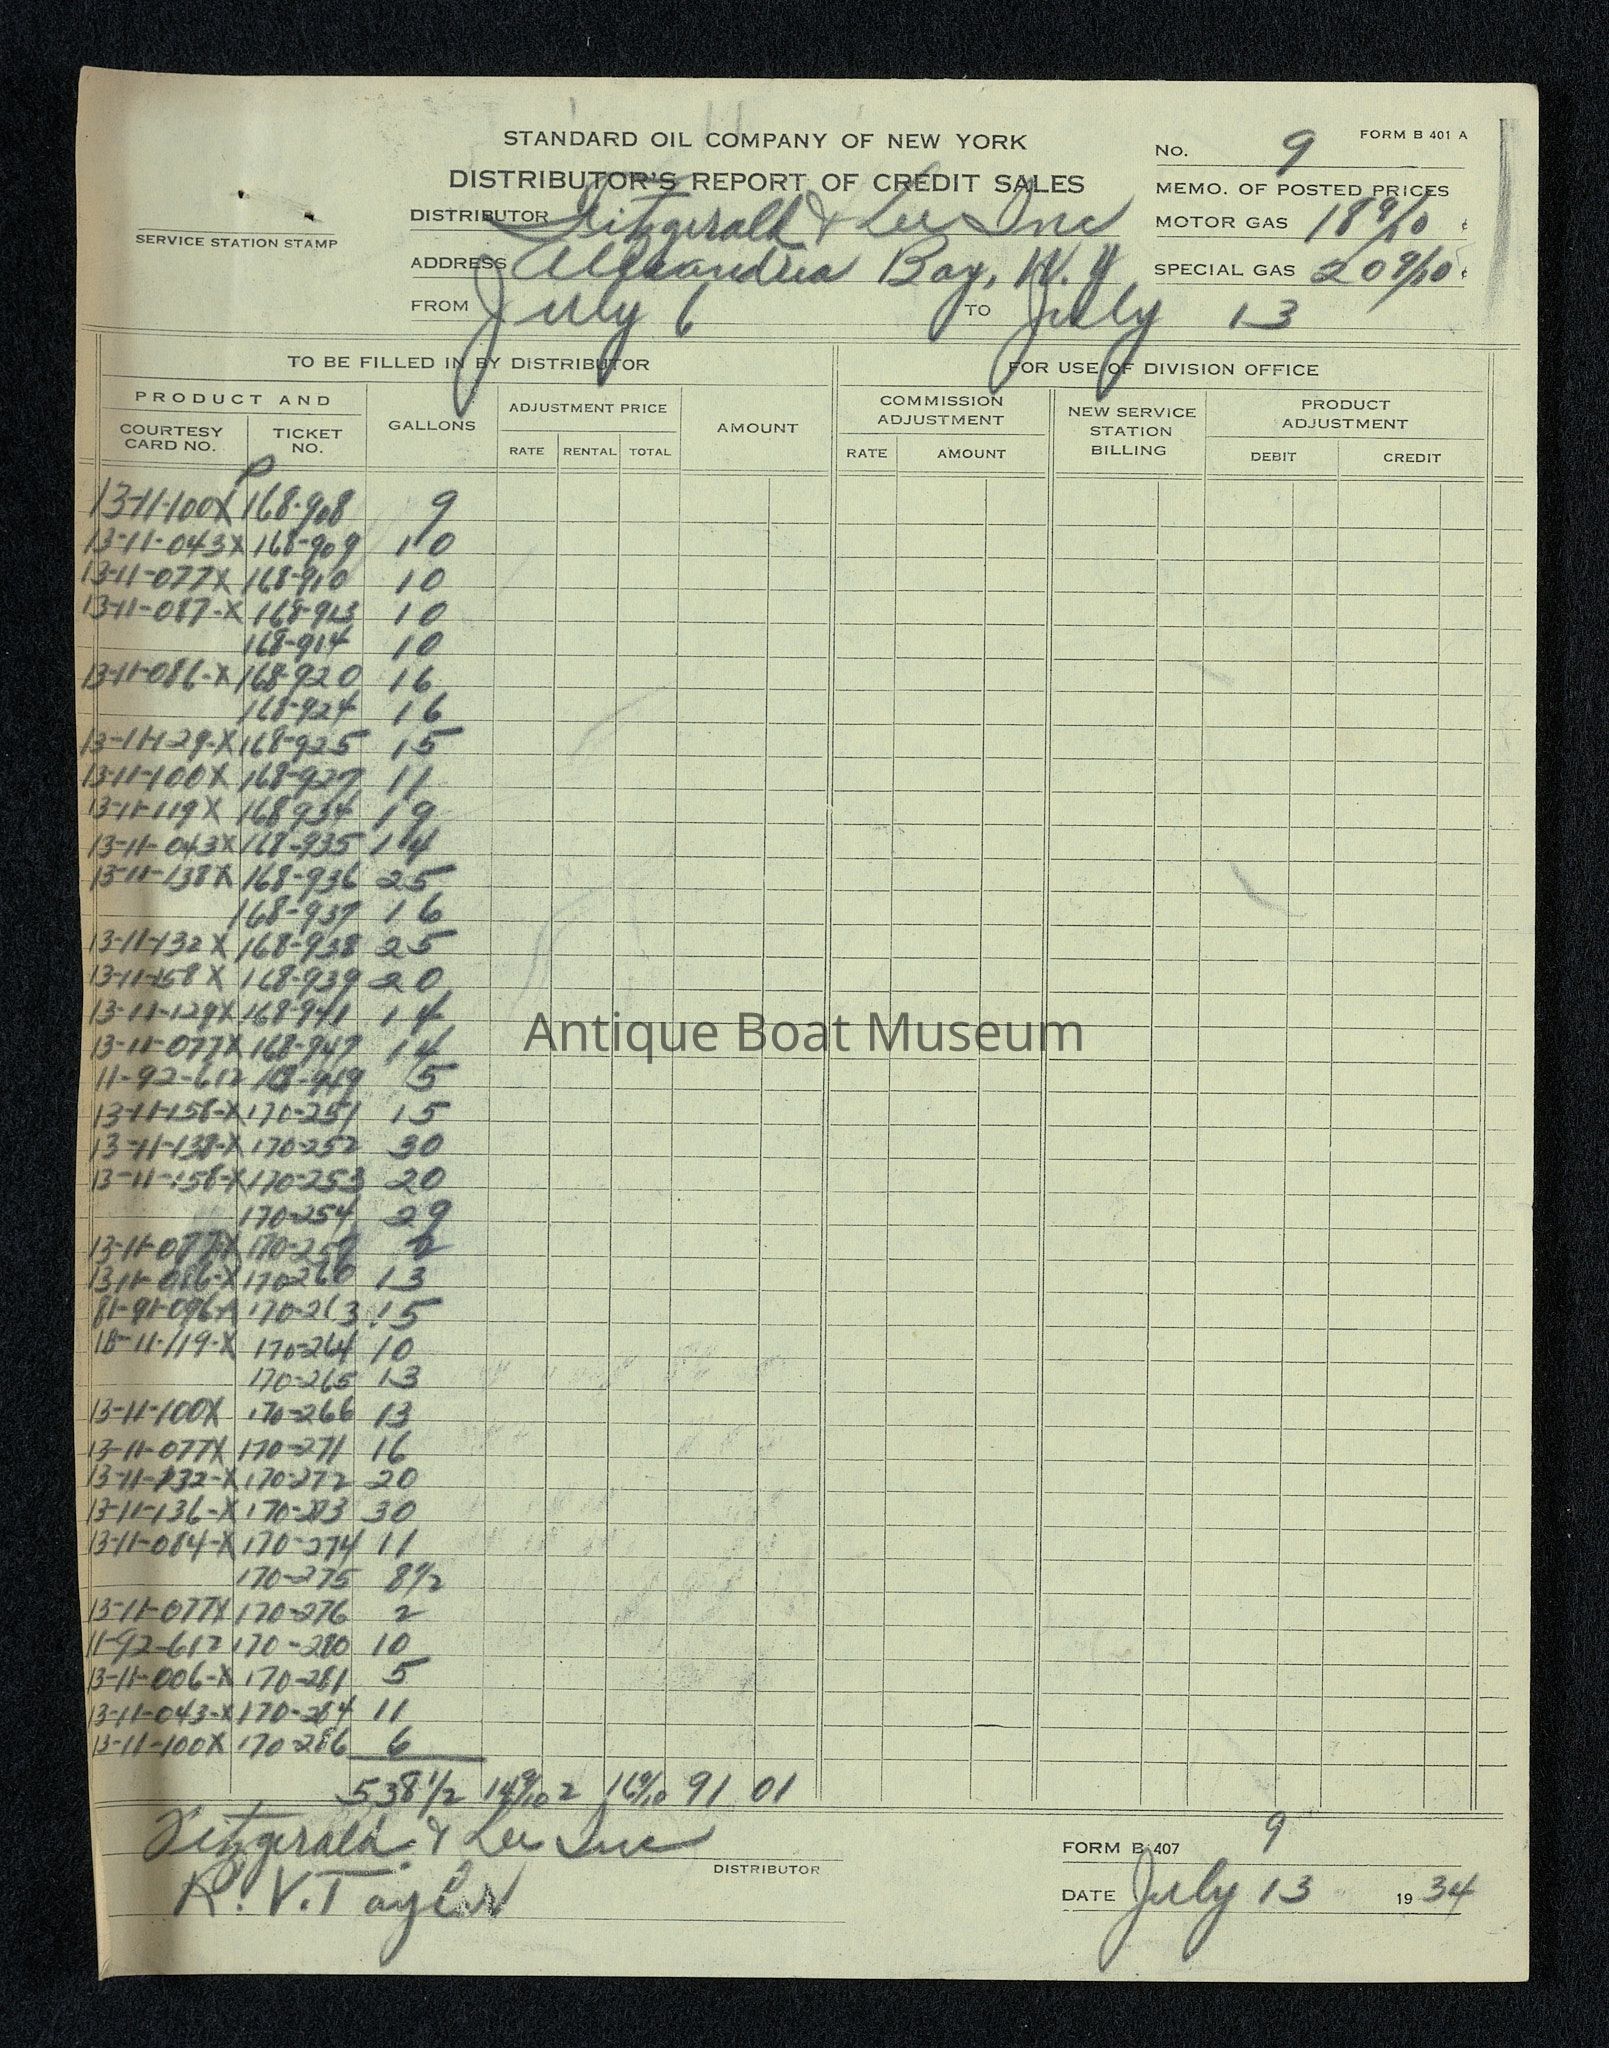 STANDARD OIL COMPANY OF NEW YORK
FORM B 401 A
NO. 9
DISTRIBUTOR'S REPORT OF CREDIT SALES
MEMO. OF POSTED PRICES
DISTRIBUTOR Fitzgerald & Lee Inc
MOTOR GAS 18 9/10 ¢
SERVICE STATION STAMP
ADDRESS Alexandria Bay, N.Y
SPECIAL GAS 20 9/10 ¢
FROM July 6 TO July 13
TO BE FILLED IN BY DISTRIBUTOR
FOR USE OF DIVISION OFFICE
PRODUCT AND
COURTESY CARD NO.
TICKET NO.
GALLONS
ADJUSTMENT PRICE
RATE RENTAL TOTAL
AMOUNT
COMMISSION ADJUSTMENT
RATE AMOUNT
NEW SERVICE STATION BILLING
PRODUCT ADJUSTMENT
DEBIT CREDIT
P
13-11-100X 168-908 9
13-11-043X 168-909 10
13-11-077X 168-910 10
13-11-087-X 168-913 10
168-914 10
13-11-086-X 168-920 16
168-924 16
13-11-129-X 168-925 15
13-11-100X 168-927 11
13-11-119X 168 934 19
13-11-043X 168-935 14
13-11-138X 168-936 25
168-937 16
13-11-132X 168-938 25
13-11-158X 168-939 20
13-11-129X 168-941 14
13-11-077X 168-947 14
11-92-612 168-949 5
13-11-158-X 170-251 15
13-11-138-X 170-252 30
13-11-158-X 170-253 20
170-254 29
13-11-077-X 170-259 2
13-11-086-X 170-260 13
81-91-096-A 170-263 15
13-11-119-X 170-264 10
170-265 13
13-11-100X 170-266 13
13-11-077X 170-271 16
13-11-132-X 170-272 20
13-11-136-X 170-273 30
13-11-084-X 170-274 11
170-275 8 1/2
13-11-077X 170-276 2
11-92-612 170-280 10
13-11-006-X 170-281 5
13-11-043-X 170-284 11
13-11-100X 170-286 6
538 1/2 14 9/10 2 16 9/10 91 01
Antique Boat Museum
Fitzgerald & Lee Inc
DISTRIBUTOR
K. V. Taylor
FORM B 407 9
DATE July 13 1934